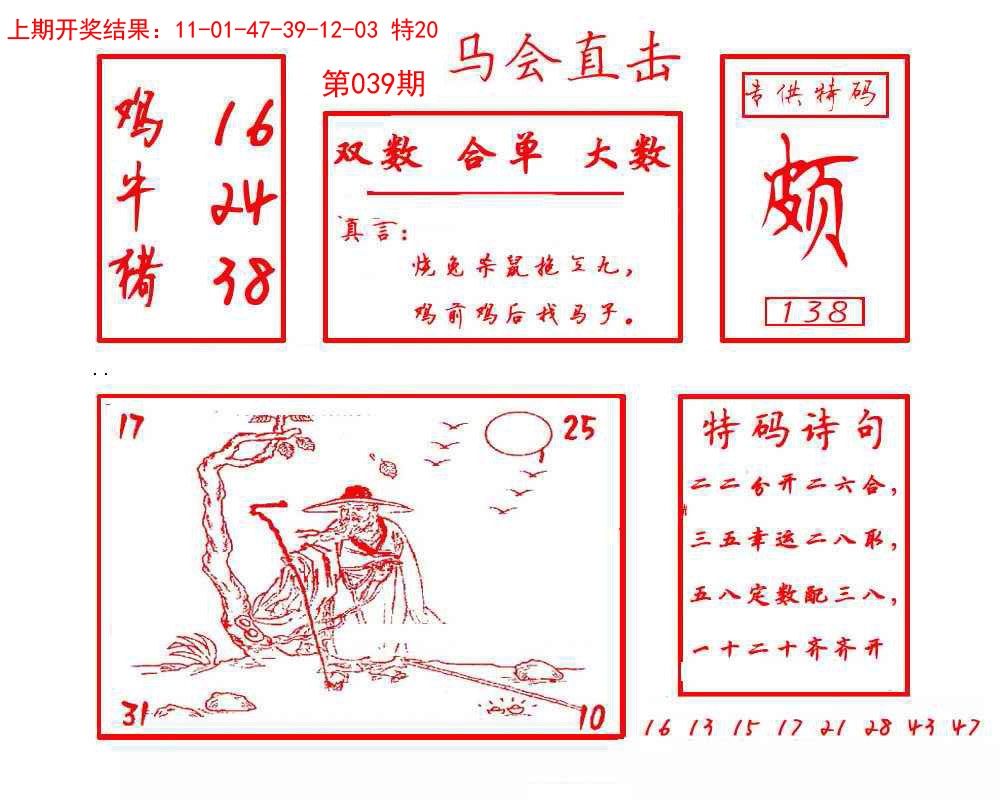 上期开奖结果：11-01-47-39-12-03 特20
马会直击
第039期
鸡 16
牛 24
猪 38
双数 合单 大数
真言：
烧兔杀鼠拖立九，
鸡前鸡后找马子。
专供特码
颇
138
17
25
31
10
特码诗句
二二分开二六合，
三五幸运二八取，
五八定数配三八，
一十二十齐齐开
16 13 15 17 21 28 43 47